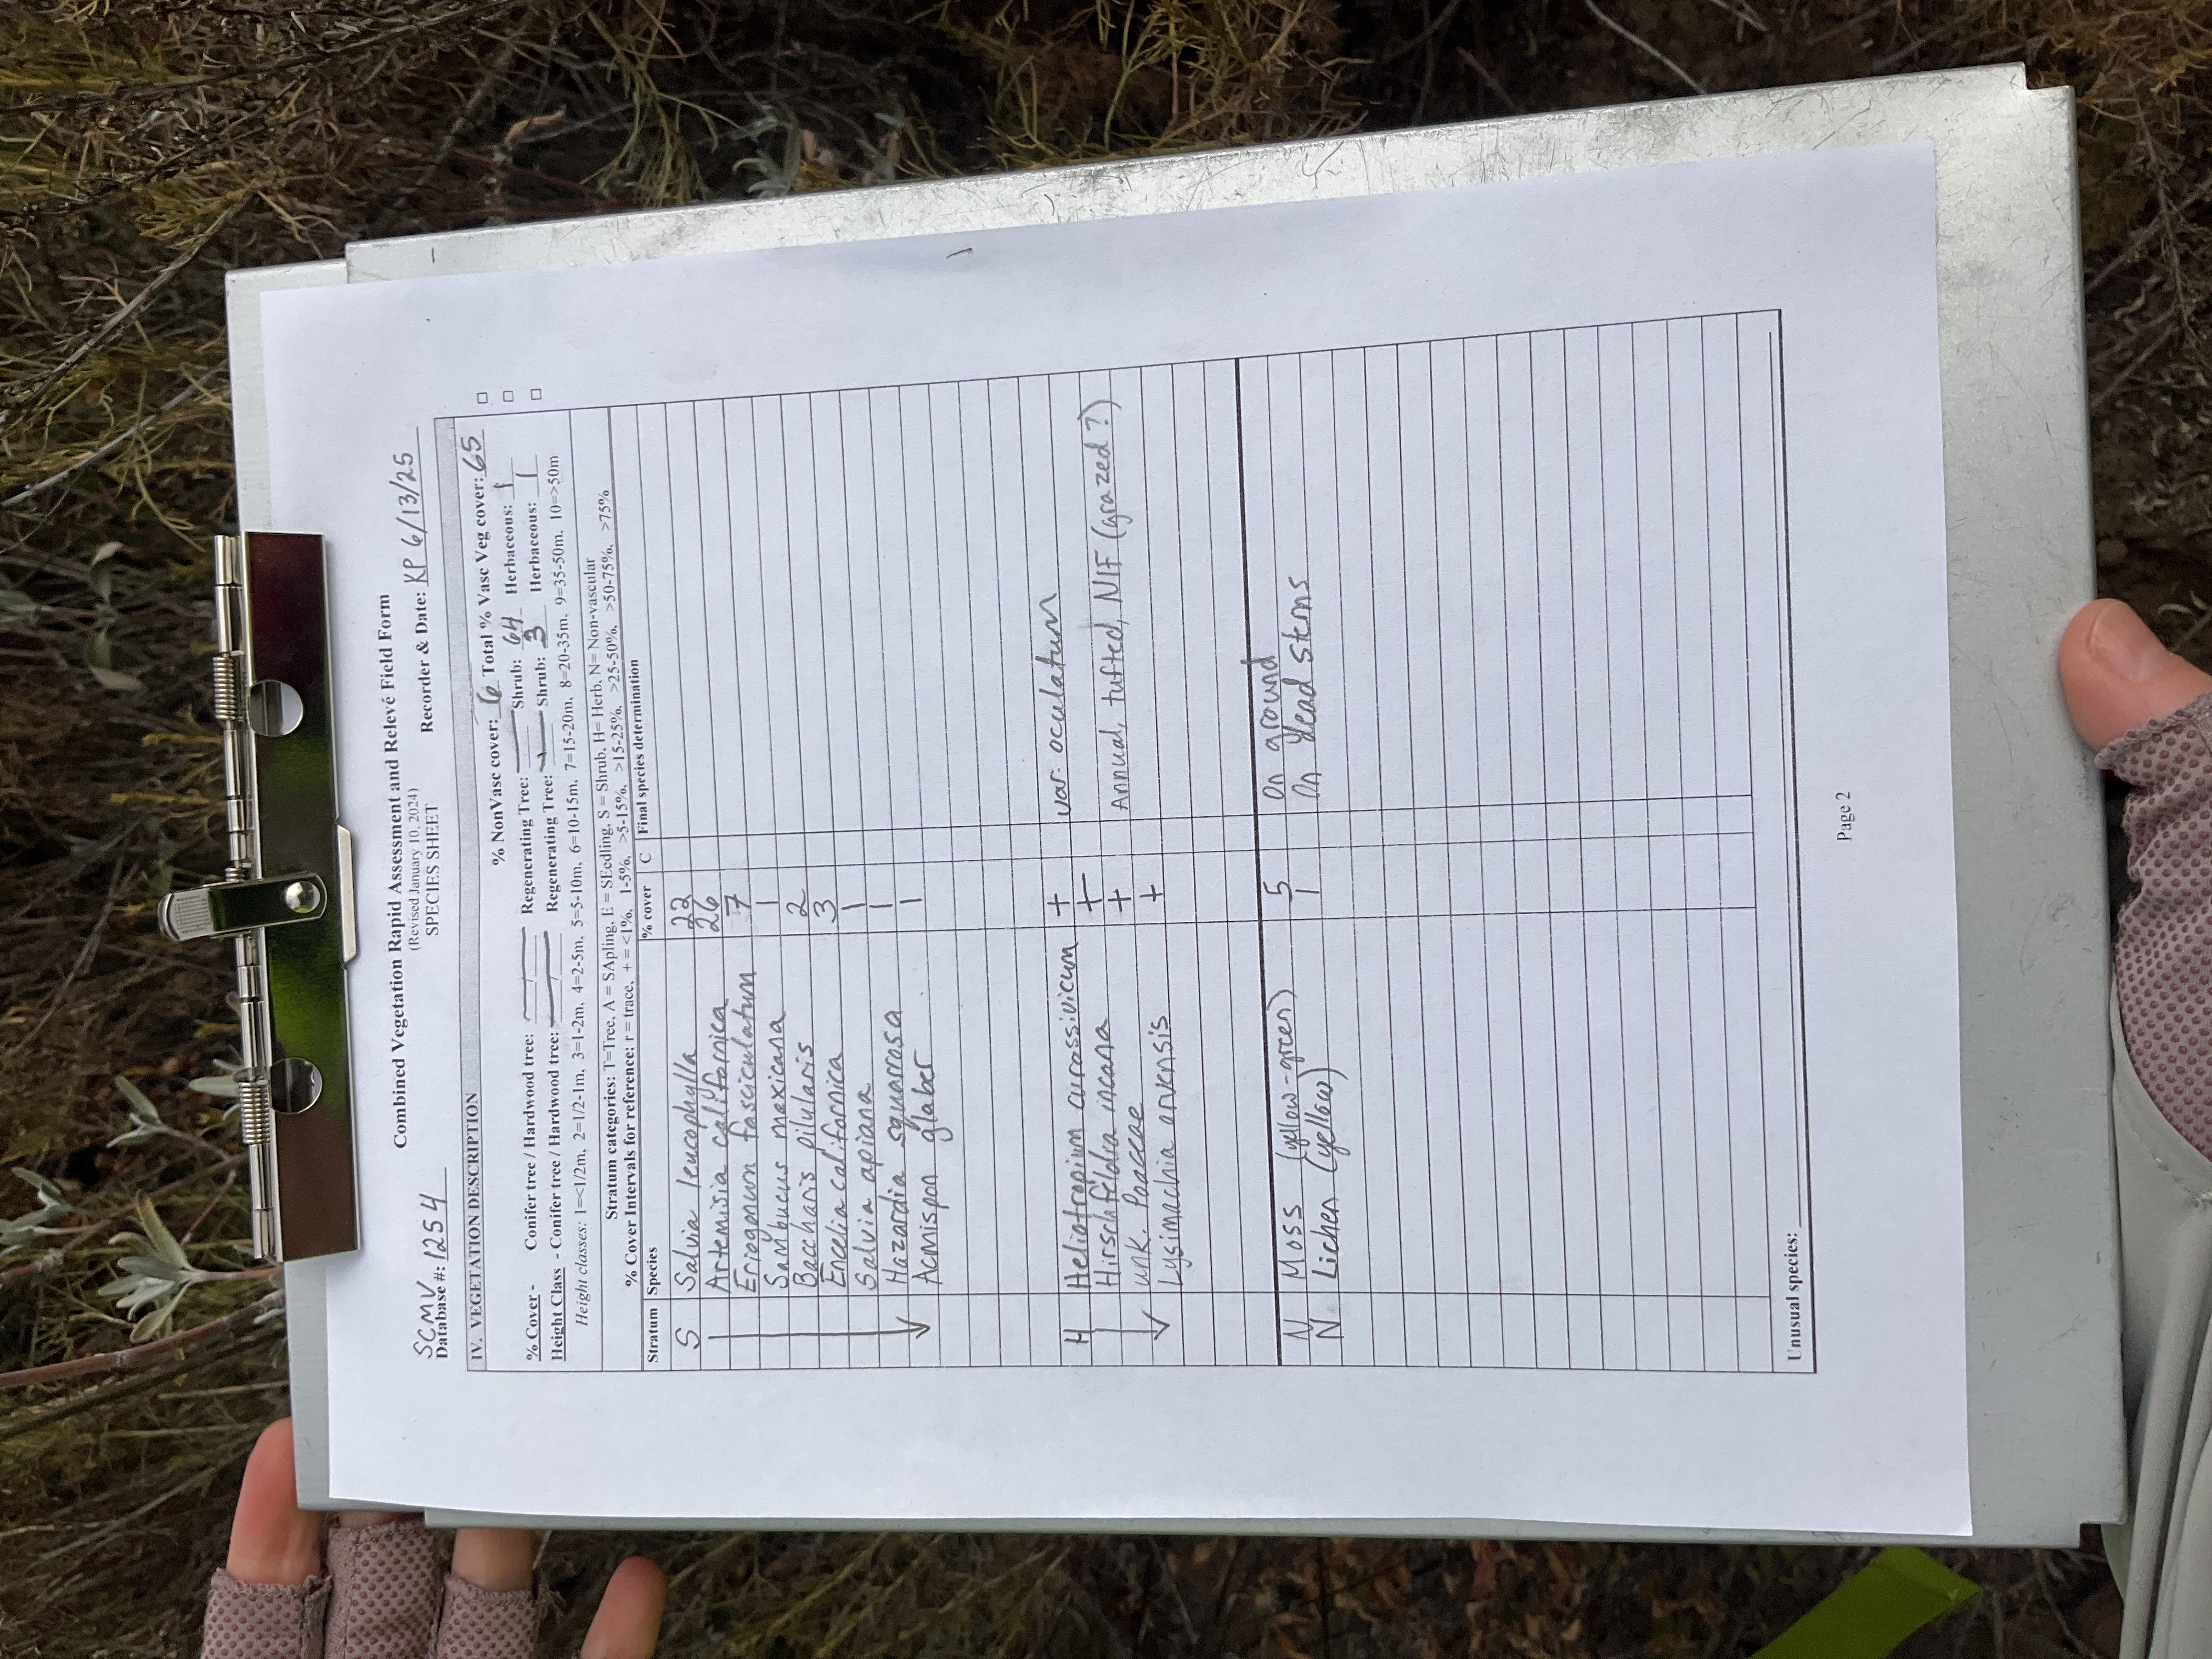 Combined Vegetation Rapid Assessment and Relevé Field Form
(Revised January 10, 2024)
SCMV
Database #: 1254 SPECIES SHEET Recorder & Date: KP 6/13/25
IV. VEGETATION DESCRIPTION
% NonVasc cover: 6 Total % Vasc Veg cover: 65
% Cover - Conifer tree / Hardwood tree: — / — Regenerating Tree: — Shrub: 64 Herbaceous: 1
Height Class - Conifer tree / Hardwood tree: — / — Regenerating Tree: — Shrub: 3 Herbaceous: 1
Height classes: 1=<1/2m, 2=1/2-1m, 3=1-2m, 4=2-5m, 5=5-10m, 6=10-15m, 7=15-20m, 8=20-35m, 9=35-50m, 10=>50m
Stratum categories: T=Tree, A = SApling, E = SEedling, S = Shrub, H= Herb, N= Non-vascular
% Cover Intervals for reference: r = trace, + = <1%, 1-5%, >5-15%, >15-25%, >25-50%, >50-75%, >75%
Stratum Species % cover C Final species determination
S Salvia leucophylla 22
Artemisia californica 26
Eriogonum fasciculatum 7
Sambucus mexicana 1
Baccharis pilularis 2
Encelia californica 3
Salvia apiana 1
Hazardia squarrosa 1
Acmispon glaber 1
H Heliotropium curassivicum + var. oculatum
Hirschfeldia incana +
unk. Poaceae + Annual, tufted, NIF (grazed?)
Lysimachia arvensis +
N Moss (yellow-green) 5 On ground
N Lichen (yellow) 1 On dead stems
Unusual species:
Page 2